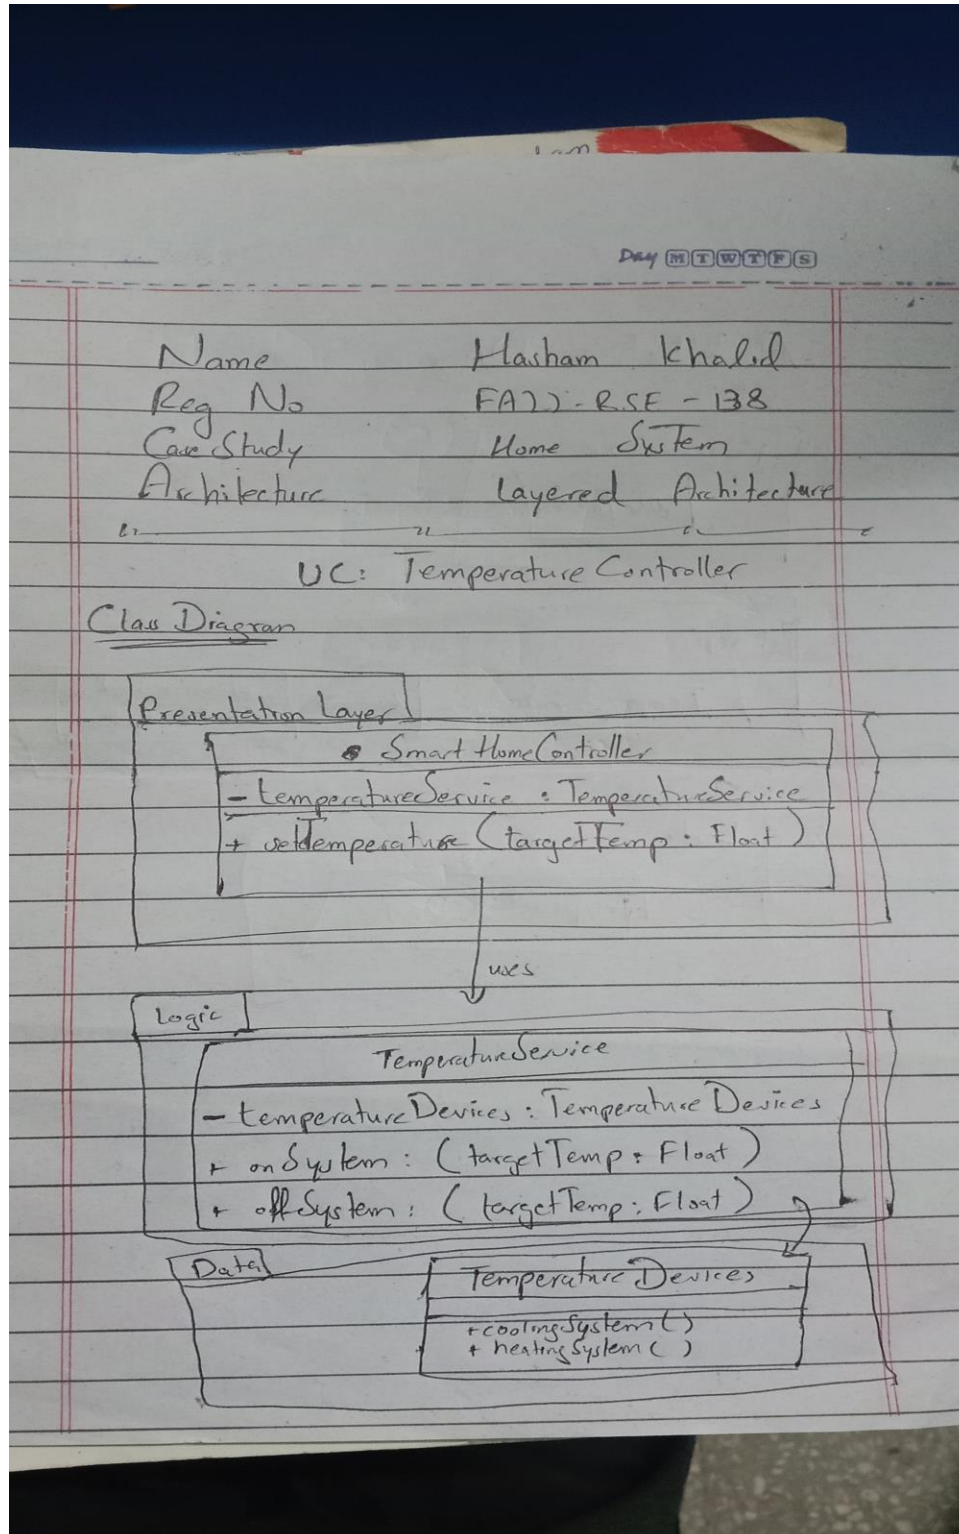 Day M T W T F S
Name Hasham Khalid
Reg No FA22-RSE-138
Case Study Home System
Architecture Layered Architecture
UC: Temperature Controller
Class Diagram
Presentation Layer
Smart HomeController
- temperatureService : TemperatureService
+ setTemperature (targetTemp : Float)
uses
Logic
TemperatureService
- temperatureDevices : Temperature Devices
+ onSystem : (targetTemp : Float)
+ offSystem : (targetTemp : Float)
Data
Temperature Devices
+coolingSystem()
+ heatingSystem()